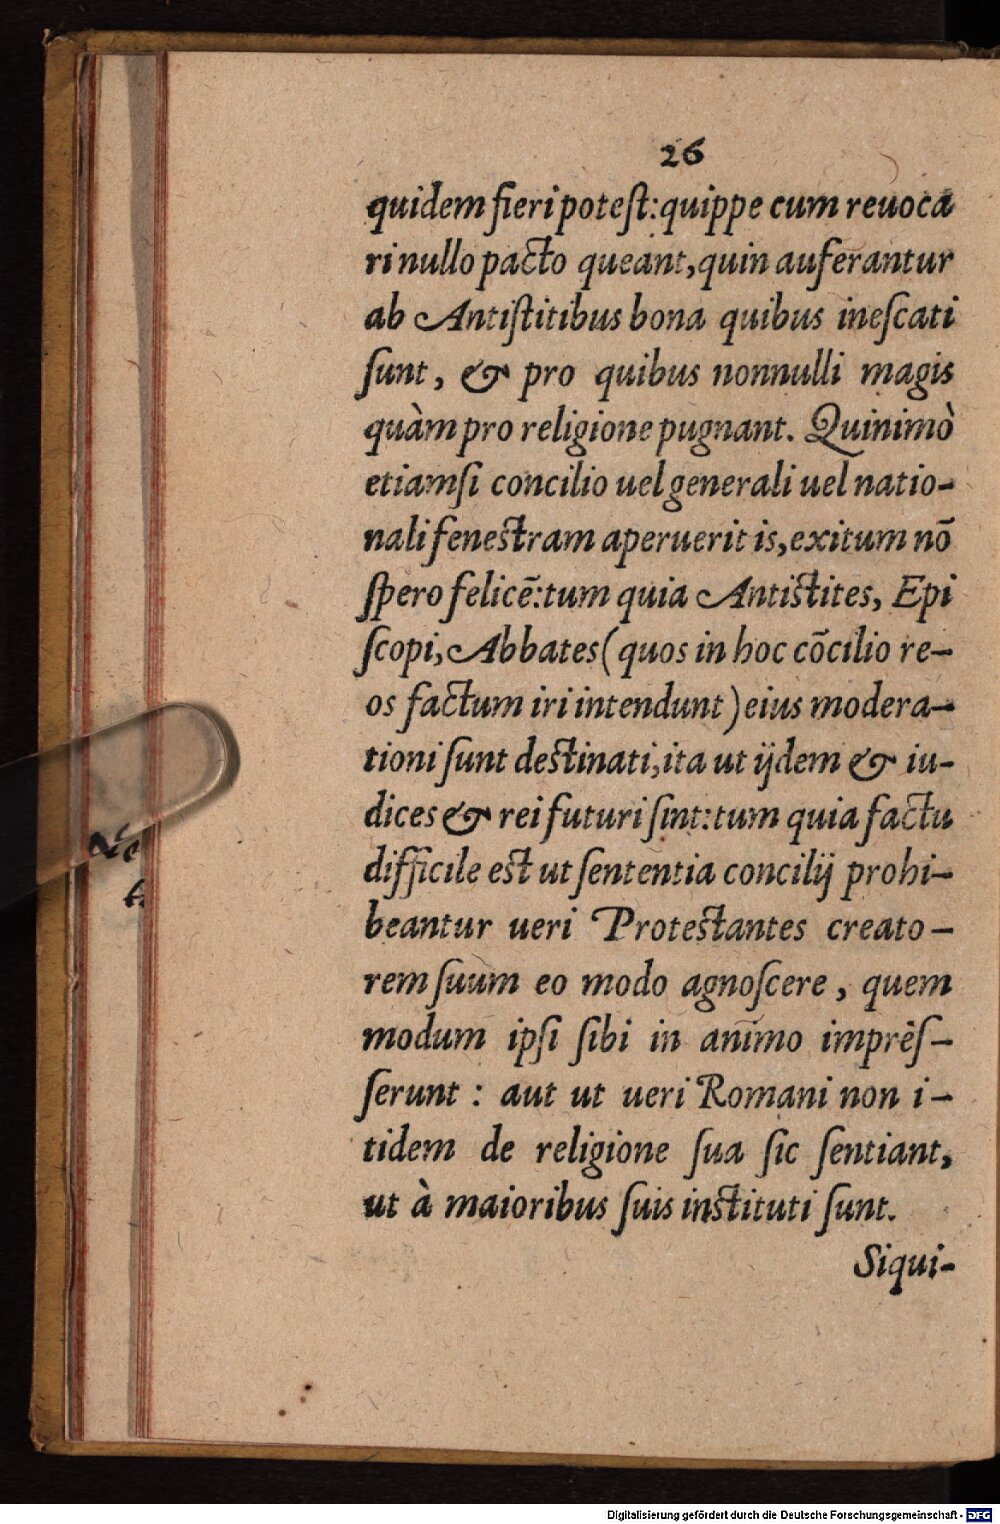 26
quidem fieri potest: quippe cum reuoca
ri nullo pacto queant, quin auferantur
ab Antistitibus bona quibus inescati
sunt, & pro quibus nonnulli magis
quàm pro religione pugnant. Quinimò
etiamsi concilio uel generali uel natio-
nali fenestram aperuerit is, exitum nō
spero felicē: tum quia Antistites, Epi
scopi, Abbates (quos in hoc cōcilio re-
os factum iri intendunt) eius modera-
tioni sunt destinati, ita ut ijdem & iu-
dices & rei futuri sint: tum quia factu
difficile est ut sententia concilij prohi-
beantur ueri Protestantes creato-
rem suum eo modo agnoscere, quem
modum ipsi sibi in animo impres-
serunt: aut ut ueri Romani non i-
tidem de religione sua sic sentiant,
ut à maioribus suis instituti sunt.
Siqui-
Digitalisierung gefördert durch die Deutsche Forschungsgemeinschaft - DFG